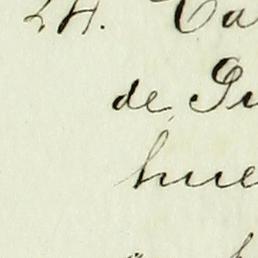 24. Ca
de Gu
hue